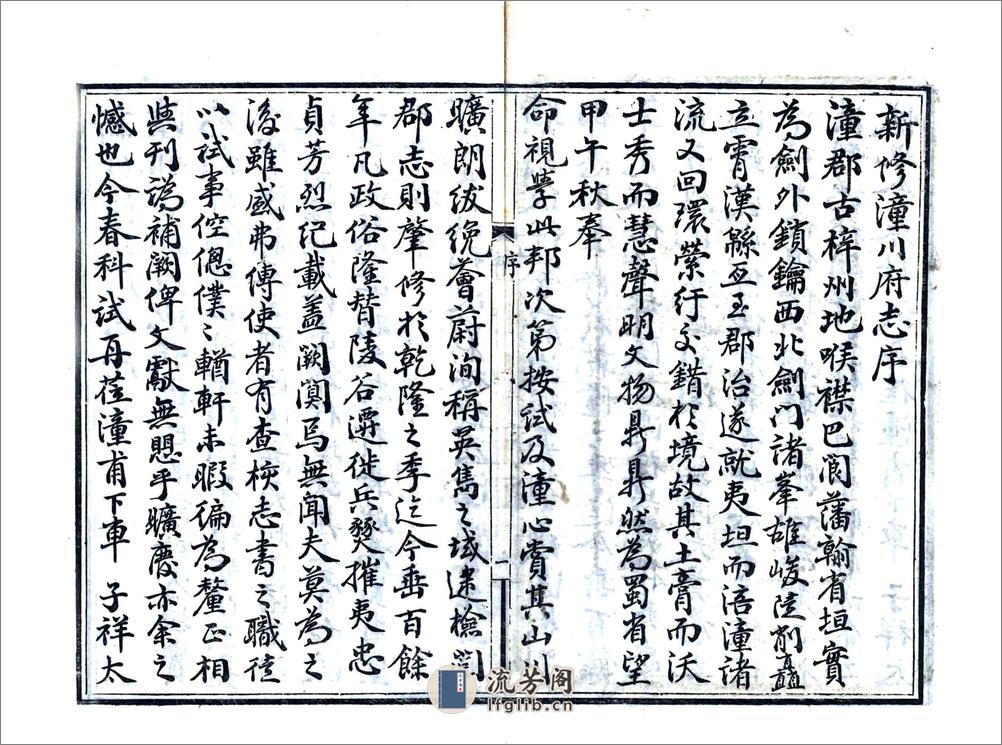 新修潼川府志序
潼郡古梓州地喉襟巴閬藩翰省垣實
為劍外鎖鑰西北劍门諸峯雄峻陡削矗
立霄漢緜亙至郡治遂就夷坦而涪潼诸
流又回環縈紆交錯於境故其土膏而沃
士秀而慧聲明文物鼎鼎然為蜀省望
甲午秋奉
命視學此邦次第按試及潼心賞其山川
曠朗紱綩薈蔚洵稱英雋之域逮檢閱
郡志則肇修於乾隆之季迄今垂百餘
年凡政俗隆替陵谷遷徙兵燹摧夷忠
貞芳烈纪載盖闕闃焉無聞夫莫為之
後雖盛弗傳使者有查核志書之職徒
以試事倥傯僕〻輶軒未暇徧為釐正相
與刊譌補闕俾文獻無愳乎曠廢亦余之
憾也今春科试再莅潼甫下車 子祥太
序
一
流芳阁
lfglib.cn